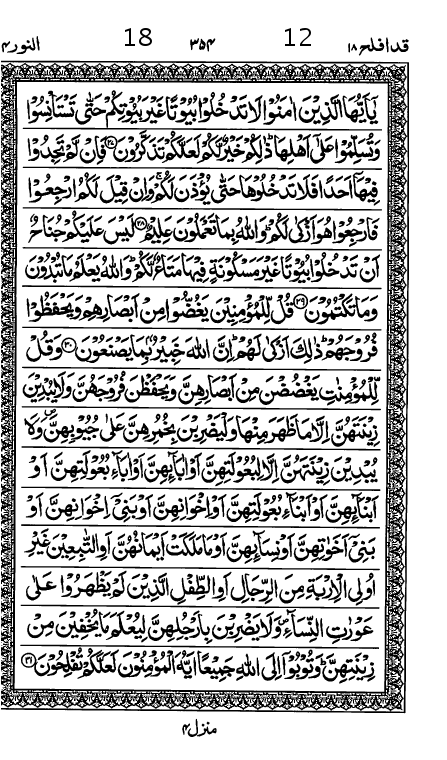 قد افلح ۱۸ 12 ۳۵۴ 18 النور ۲۴
يٰۤاَيُّهَا الَّذِيْنَ اٰمَنُوْا لَا تَدْخُلُوْا بُيُوْتًا غَيْرَ بُيُوْتِكُمْ حَتّٰى تَسْتَاْنِسُوْا
وَتُسَلِّمُوْا عَلٰۤى اَهْلِهَا ؕ ذٰلِكُمْ خَيْرٌ لَّكُمْ لَعَلَّكُمْ تَذَكَّرُوْنَ ﴿۲۷﴾ فَاِنْ لَّمْ تَجِدُوْا
فِيْهَاۤ اَحَدًا فَلَا تَدْخُلُوْهَا حَتّٰى يُؤْذَنَ لَكُمْ ۚ وَاِنْ قِيْلَ لَكُمُ ارْجِعُوْا
فَارْجِعُوْا هُوَ اَزْكٰى لَكُمْ ؕ وَاللّٰهُ بِمَا تَعْمَلُوْنَ عَلِيْمٌ ﴿۲۸﴾ لَيْسَ عَلَيْكُمْ جُنَاحٌ
اَنْ تَدْخُلُوْا بُيُوْتًا غَيْرَ مَسْكُوْنَةٍ فِيْهَا مَتَاعٌ لَّكُمْ ؕ وَاللّٰهُ يَعْلَمُ مَا تُبْدُوْنَ
وَمَا تَكْتُمُوْنَ ﴿۲۹﴾ قُلْ لِّلْمُؤْمِنِيْنَ يَغُضُّوْا مِنْ اَبْصَارِهِمْ وَيَحْفَظُوْا
فُرُوْجَهُمْ ؕ ذٰلِكَ اَزْكٰى لَهُمْ ؕ اِنَّ اللّٰهَ خَبِيْرٌۢ بِمَا يَصْنَعُوْنَ ﴿۳۰﴾ وَقُلْ
لِّلْمُؤْمِنٰتِ يَغْضُضْنَ مِنْ اَبْصَارِهِنَّ وَيَحْفَظْنَ فُرُوْجَهُنَّ وَلَا يُبْدِيْنَ
زِيْنَتَهُنَّ اِلَّا مَا ظَهَرَ مِنْهَا وَلْيَضْرِبْنَ بِخُمُرِهِنَّ عَلٰى جُيُوْبِهِنَّ ۪ وَلَا
يُبْدِيْنَ زِيْنَتَهُنَّ اِلَّا لِبُعُوْلَتِهِنَّ اَوْ اٰبَآئِهِنَّ اَوْ اٰبَآءِ بُعُوْلَتِهِنَّ اَوْ
اَبْنَآئِهِنَّ اَوْ اَبْنَآءِ بُعُوْلَتِهِنَّ اَوْ اِخْوَانِهِنَّ اَوْ بَنِيْۤ اِخْوَانِهِنَّ اَوْ
بَنِيْۤ اَخَوٰتِهِنَّ اَوْ نِسَآئِهِنَّ اَوْ مَا مَلَكَتْ اَيْمَانُهُنَّ اَوِ التّٰبِعِيْنَ غَيْرِ
اُولِى الْاِرْبَةِ مِنَ الرِّجَالِ اَوِ الطِّفْلِ الَّذِيْنَ لَمْ يَظْهَرُوْا عَلٰى
عَوْرٰتِ النِّسَآءِ ۪ وَلَا يَضْرِبْنَ بِاَرْجُلِهِنَّ لِيُعْلَمَ مَا يُخْفِيْنَ مِنْ
زِيْنَتِهِنَّ ؕ وَتُوْبُوْۤا اِلَى اللّٰهِ جَمِيْعًا اَيُّهَ الْمُؤْمِنُوْنَ لَعَلَّكُمْ تُفْلِحُوْنَ ﴿۳۱﴾
منزل ۴